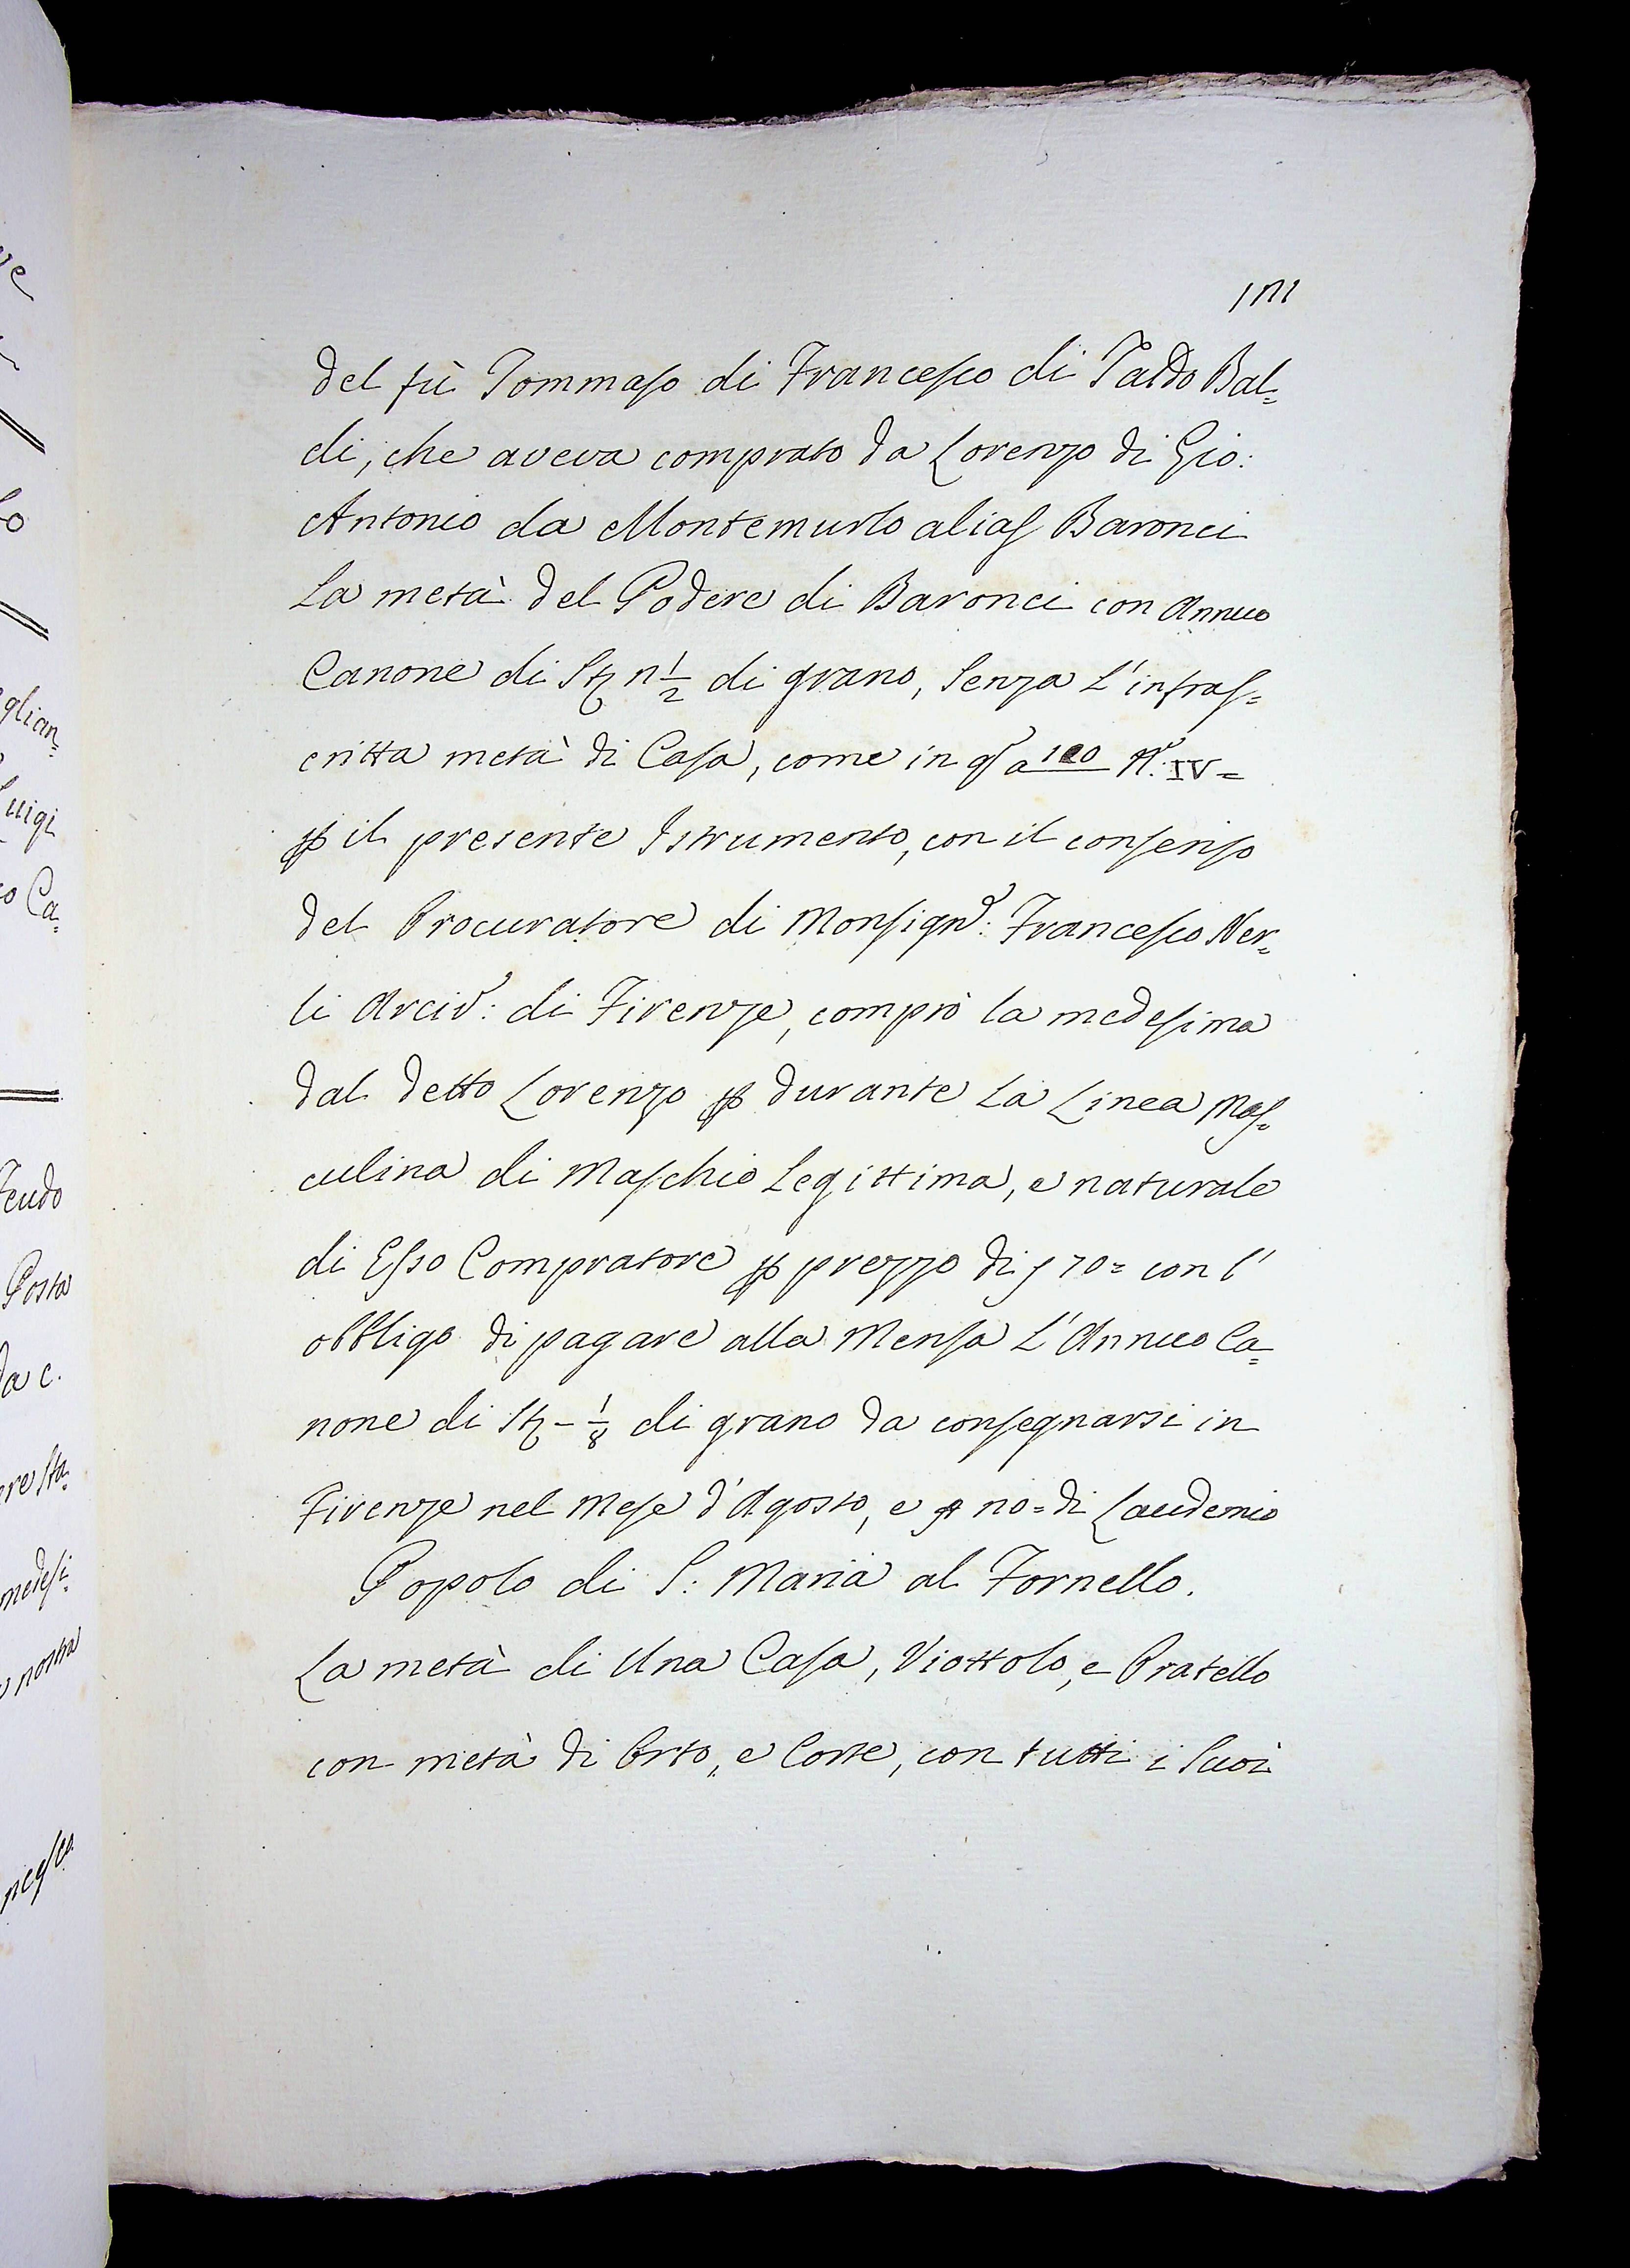 del fù Tommaso di Francesco di Taddo Bal=
di, che aveva comprato da Lorenzo di Gio:
Antonio da Montemurlo alias Baronci
La metà del Podere di Baronci con Annuo
Canone di St n 1/2 di grano, Senza L'infras=
critta metà di Casa, come in qo a 120 No: IV=
p il presente Istrumento, con il consenso
del Procuratore di Monsigne: Francesco Ner=
li Arciv: di Firenze, comprò la medesima
dal detto Lorenzo p durante La Linea Mas=
culina di Maschio Legittima, e naturale
di Esso Compratore p prezzo di f 70= con l'
obbligo di pagare alla Mensa L'Annuo Ca=
none di St - 1/8 di grano da consegnarsi in
Firenze nel Mese d'Agosto, e no= di Laudemio
Popolo di S: Maria al Fornello.
La metà di Una Casa, Viottolo, e Pratello
con metà di Orto, e Corte, con tutti i Suoi
glian=
Luigi
Ca=
Feudo
Posta
da c.
re Sta=
medesi=
nostra
ncesco